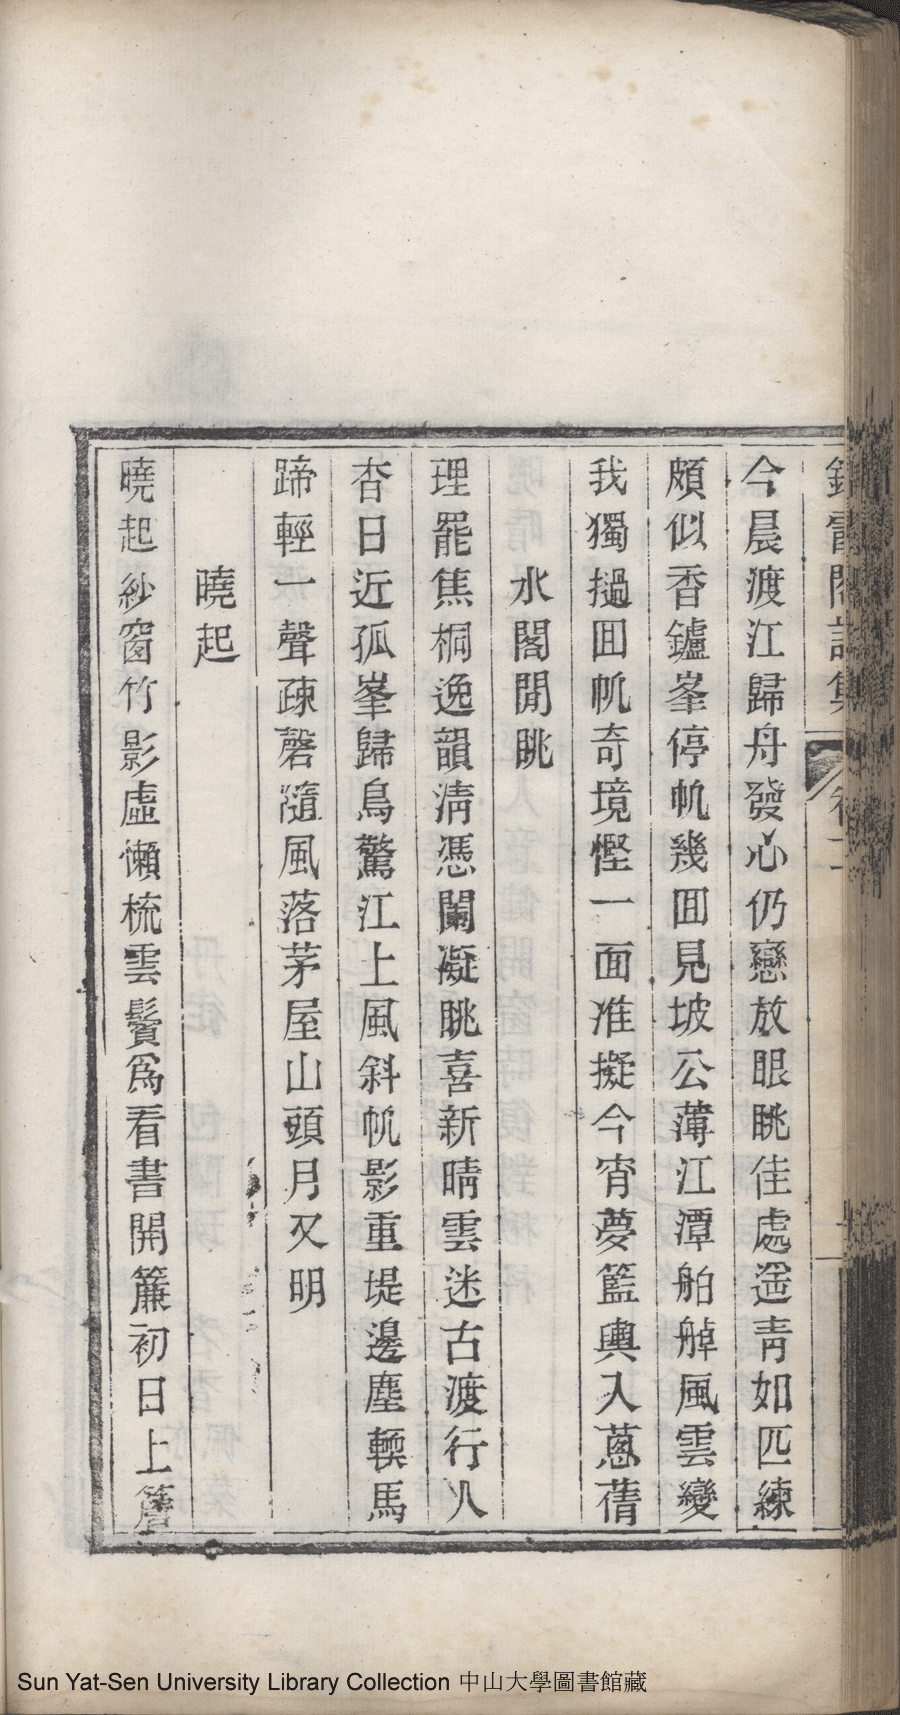 閣詩集 卷二
今晨渡江歸舟發心仍戀放眼眺佳處遥青如匹練
頗似香鑪峯停帆幾囬見坡公薄江潭舶䑲風雲變
我獨撾囬帆奇境慳一面准擬今宵夢籃輿入蔥蒨
水閣閒眺
理罷焦桐逸韻淸憑闌凝眺喜新晴雲迷古渡行人
杳日近孤峯歸鳥驚江上風斜帆影重堤邊塵輭馬
蹄輕一聲疎磬隨風落茅屋山頭月又明
曉起
曉起紗窗竹影虛懶梳雲鬢爲看書開簾初日上簷
Sun Yat-Sen University Library Collection 中山大學圖書館藏